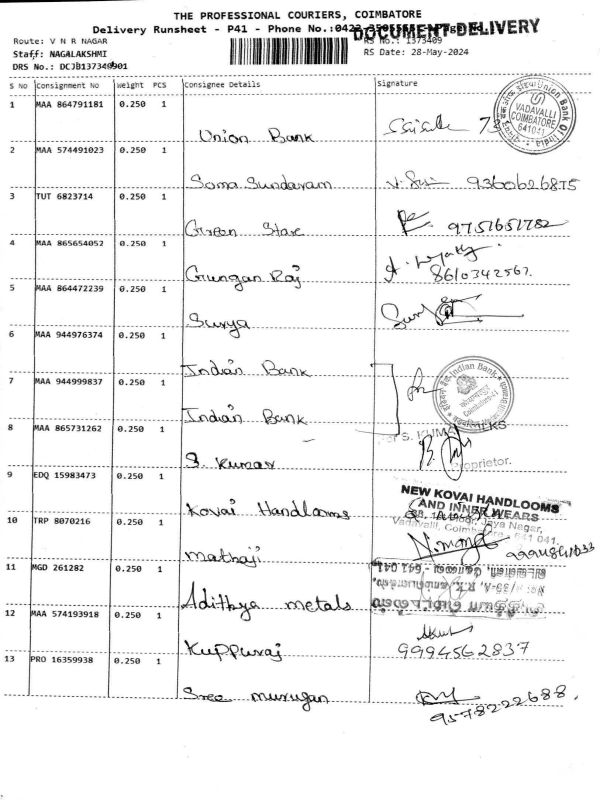 THE PROFESSIONAL COURIERS, COIMBATORE
Delivery Runsheet - P41 - Phone No.:0422
DOCUMENT DELIVERY
Route: V N R NAGAR
RS No.: 1373409
Staff: NAGALAKSHMI
RS Date: 28-May-2024
DRS No.: DCJB137340901
S No Consignment No Weight PCS Consignee Details Signature
1 MAA 864791181 0.250 1
Union Bank
Union Bank Of India
VADAVALLI
COIMBATORE
641041
2 MAA 574491023 0.250 1
Soma Sundaram 9360626815
3 TUT 6823714 0.250 1
Green Stare 9751651782
4 MAA 865654052 0.250 1
Gungan Raj 8610342567.
5 MAA 864472239 0.250 1
Surya
6 MAA 944976374 0.250 1
Indian Bank
Indian Bank
Coimbatore-41
7 MAA 944999837 0.250 1
Indian Bank
8 MAA 865731262 0.250 1
S. Kumar
Proprietor.
9 EDQ 15983473 0.250 1
Kovai Handlooms
NEW KOVAI HANDLOOMS
AND INNER WEARS
Jaya Nagar,
Vadavalli, 641 041.
10 TRP 8070216 0.250 1
Mathaji
11 MGD 261282 0.250 1
Adithya metals
12 MAA 574193918 0.250 1
Kuppuraj 9994562837
13 PRO 16359938 0.250 1
Sree murugan 9578222688.